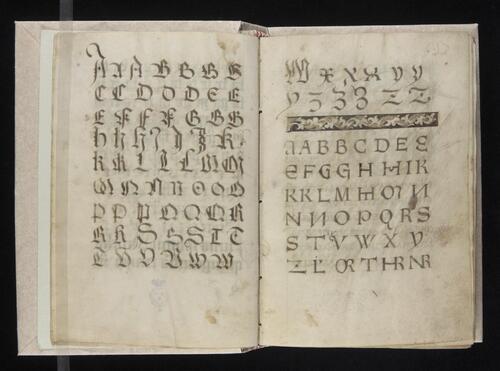 A A A B B B G
C C D D D E E
E F F F G G G
H H H I J K K
K K L L L M M
M N N N O O O
P P P Q Q Q R
R R S S S T T
T V V V W W
W X X X Y Y
Y Z Z Z Z Z
A A B B C D E E
E F G G H H I K
K K L M H M N
N N O P Q R S
S T V W X Y
Z L OR T HR NR